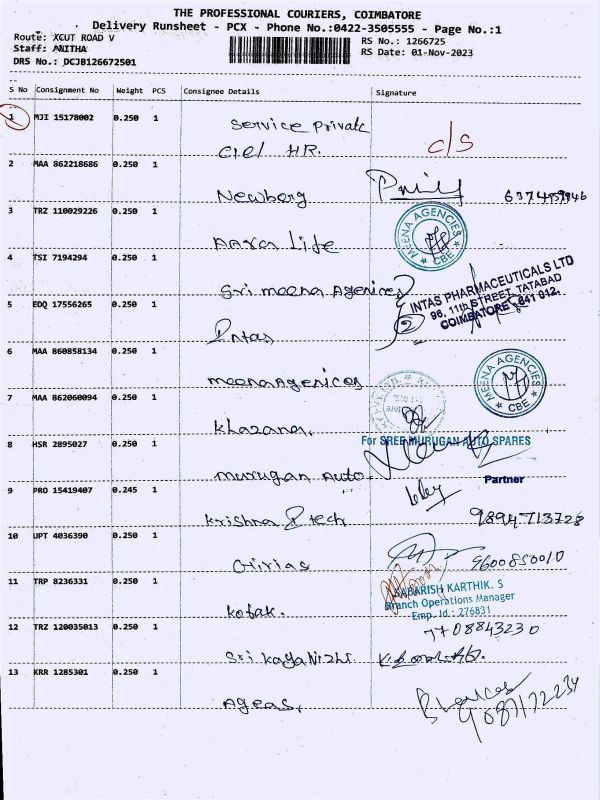 THE PROFESSIONAL COURIERS, COIMBATORE
Delivery Runsheet - PCX - Phone No.:0422-3505555 - Page No.:1
Route: XCUT ROAD V
RS No.: 1266725
Staff: ANITHA
RS Date: 01-Nov-2023
DRS No.: DCJB126672501
S No Consignment No Weight PCS Consignee Details Signature
1 MJI 15178002 0.250 1 Service Private
Ciel HR. C/S
2 MAA 862218686 0.250 1
Newberg
3 TRZ 110029226 0.250 1
Aara Life MEENA AGENCIES CBE
4 TSI 7194294 0.250 1
Sri meena Agenices INTAS PHARMACEUTICALS LTD
96, 11th STREET, TATABAD
COIMBATORE - 641 012.
5 EDQ 17556265 0.250 1
Intas
6 MAA 860858134 0.250 1
meena Agenices MEENA AGENCIES CBE
7 MAA 862060094 0.250 1
Khazana.
For SREE MURUGAN AUTO SPARES
8 HSR 2895027 0.250 1
murugan Auto Partner
9 PRO 15419407 0.245 1
Krishna I tech 9894713728
10 UPT 4036390 0.250 1
9600850010
11 TRP 8236331 0.250 1
SABARISH KARTHIK. S
Branch Operations Manager
Emp. Id : 276831
kotak.
7708843230
12 TRZ 120035013 0.250 1
13 KRR 1285301 0.250 1
Ageas.
9087172234